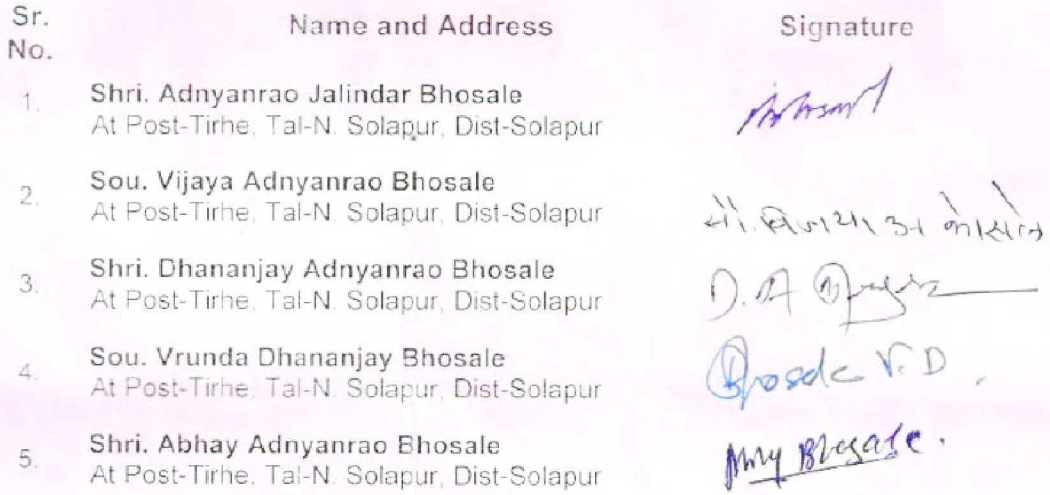 Sr.
No.
Name and Address
Signature
1.
Shri. Adnyanrao Jalindar Bhosale
At Post-Tirhe, Tal-N. Solapur, Dist-Solapur
2.
Sou. Vijaya Adnyanrao Bhosale
At Post-Tirhe, Tal-N. Solapur, Dist-Solapur
सौ. विजया अ भोसले
3.
Shri. Dhananjay Adnyanrao Bhosale
At Post-Tirhe, Tal-N. Solapur, Dist-Solapur
D. A
4.
Sou. Vrunda Dhananjay Bhosale
At Post-Tirhe, Tal-N. Solapur, Dist-Solapur
Bhosale V. D.
5.
Shri. Abhay Adnyanrao Bhosale
At Post-Tirhe, Tal-N. Solapur, Dist-Solapur
Bhosale.